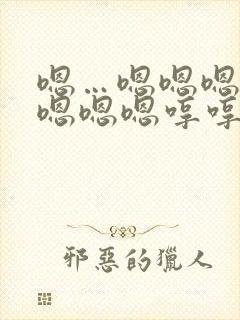 嗯…嗯嗯嗯
嗯嗯嗯哼哼
邪惡的獵人